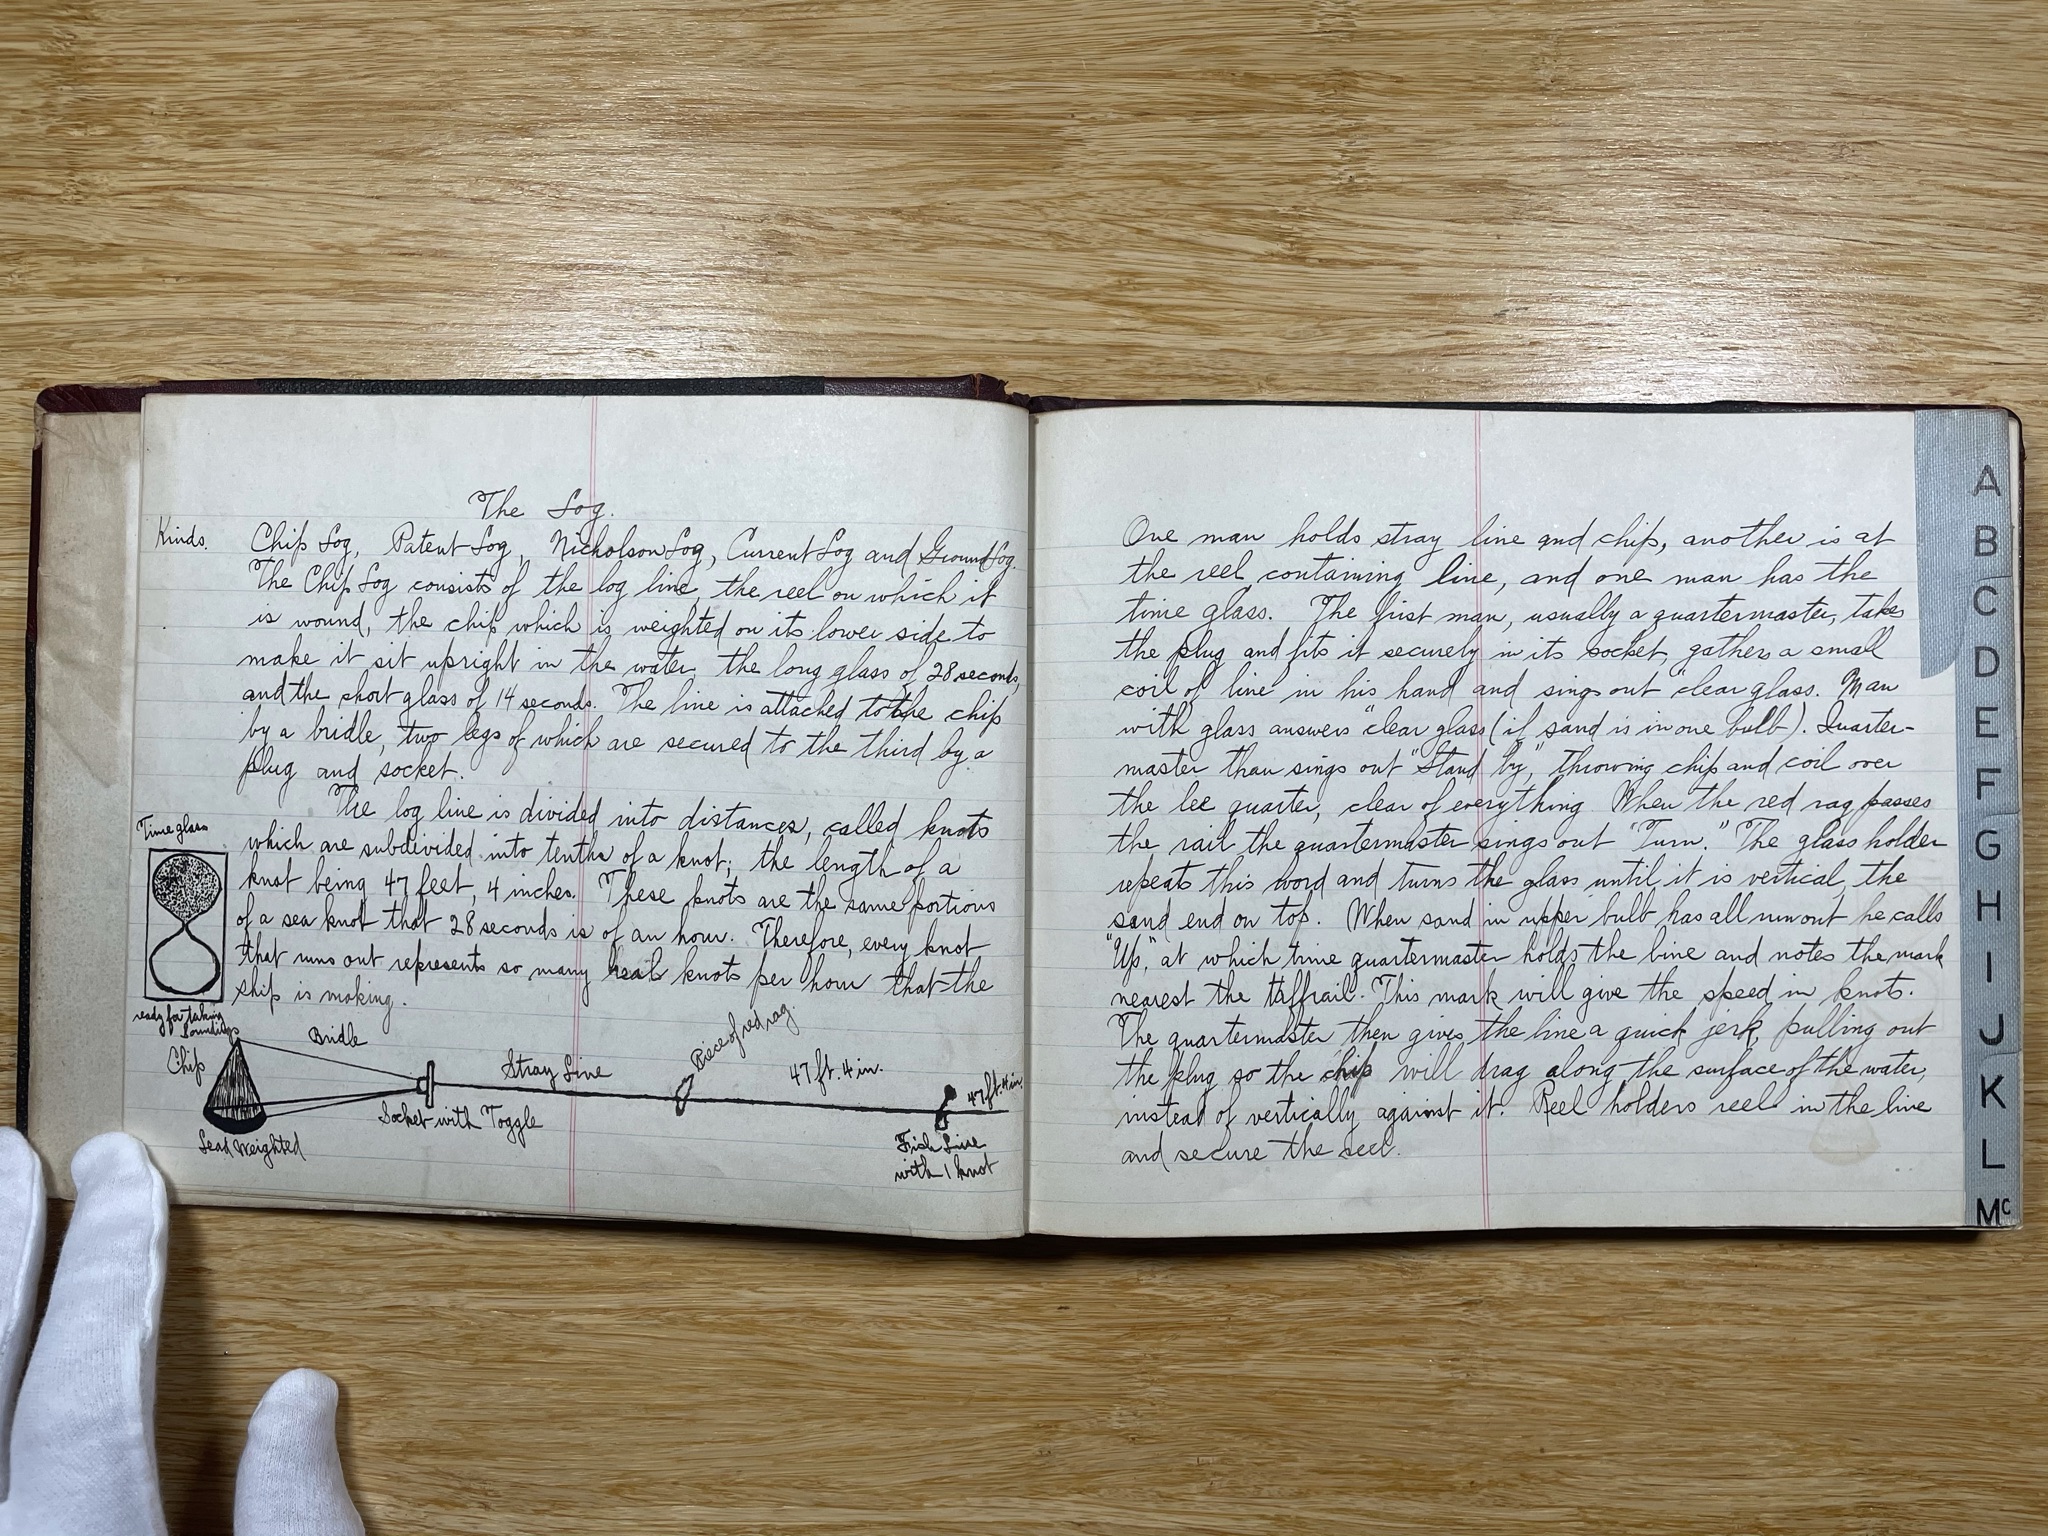 The Log.
Kinds. Chip Log, Patent Log, Nicholson Log, Current Log and Ground Log.
The Chip Log consists of the log line, the reel on which it
is wound, the chip which is weighted on its lower side to
make it sit upright in the water, the long glass of 28 seconds,
and the short glass of 14 seconds. The line is attached to the chip
by a bridle, two legs of which are secured to the third by a
plug and socket.
The log line is divided into distances, called knots
which are subdivided into tenths of a knot; the length of a
knot being 47 feet, 4 inches. These knots are the same portions
of a sea knot that 28 seconds is of an hour. Therefore, every knot
that runs out represents so many real knots per hour that the
ship is making.
Time glass
ready for taking
Soundings
Chip
Bridle
Stray Line
Piece of red rag
47 ft. 4 in.
47 ft. 4 in.
Socket with Toggle
Lead Weighted
Fish Line
with 1 knot
One man holds stray line and chip, another is at
the reel containing line, and one man has the
time glass. The first man, usually a quartermaster, takes
the plug and fits it securely in its socket, gathers a small
coil of line in his hand and sings out "clear glass. Man
with glass answers "clear glass (if sand is in one bulb). Quarter-
master than sings out "Stand by," throwing chip and coil over
the lee quarter, clear of everything. When the red rag passes
the rail the quartermaster sings out "Turn." The glass holder
repeats this word and turns the glass until it is vertical, the
sand end on top. When sand in upper bulb has all run out he calls
"Up," at which time quartermaster holds the line and notes the mark
nearest the taffrail. This mark will give the speed in knots.
The quartermaster then gives the line a quick jerk, pulling out
the plug so the chip will drag along the surface of the water,
instead of vertically against it. Reel holders reel in the line
and secure the reel.
A
B
C
D
E
F
G
H
I
J
K
L
Mc